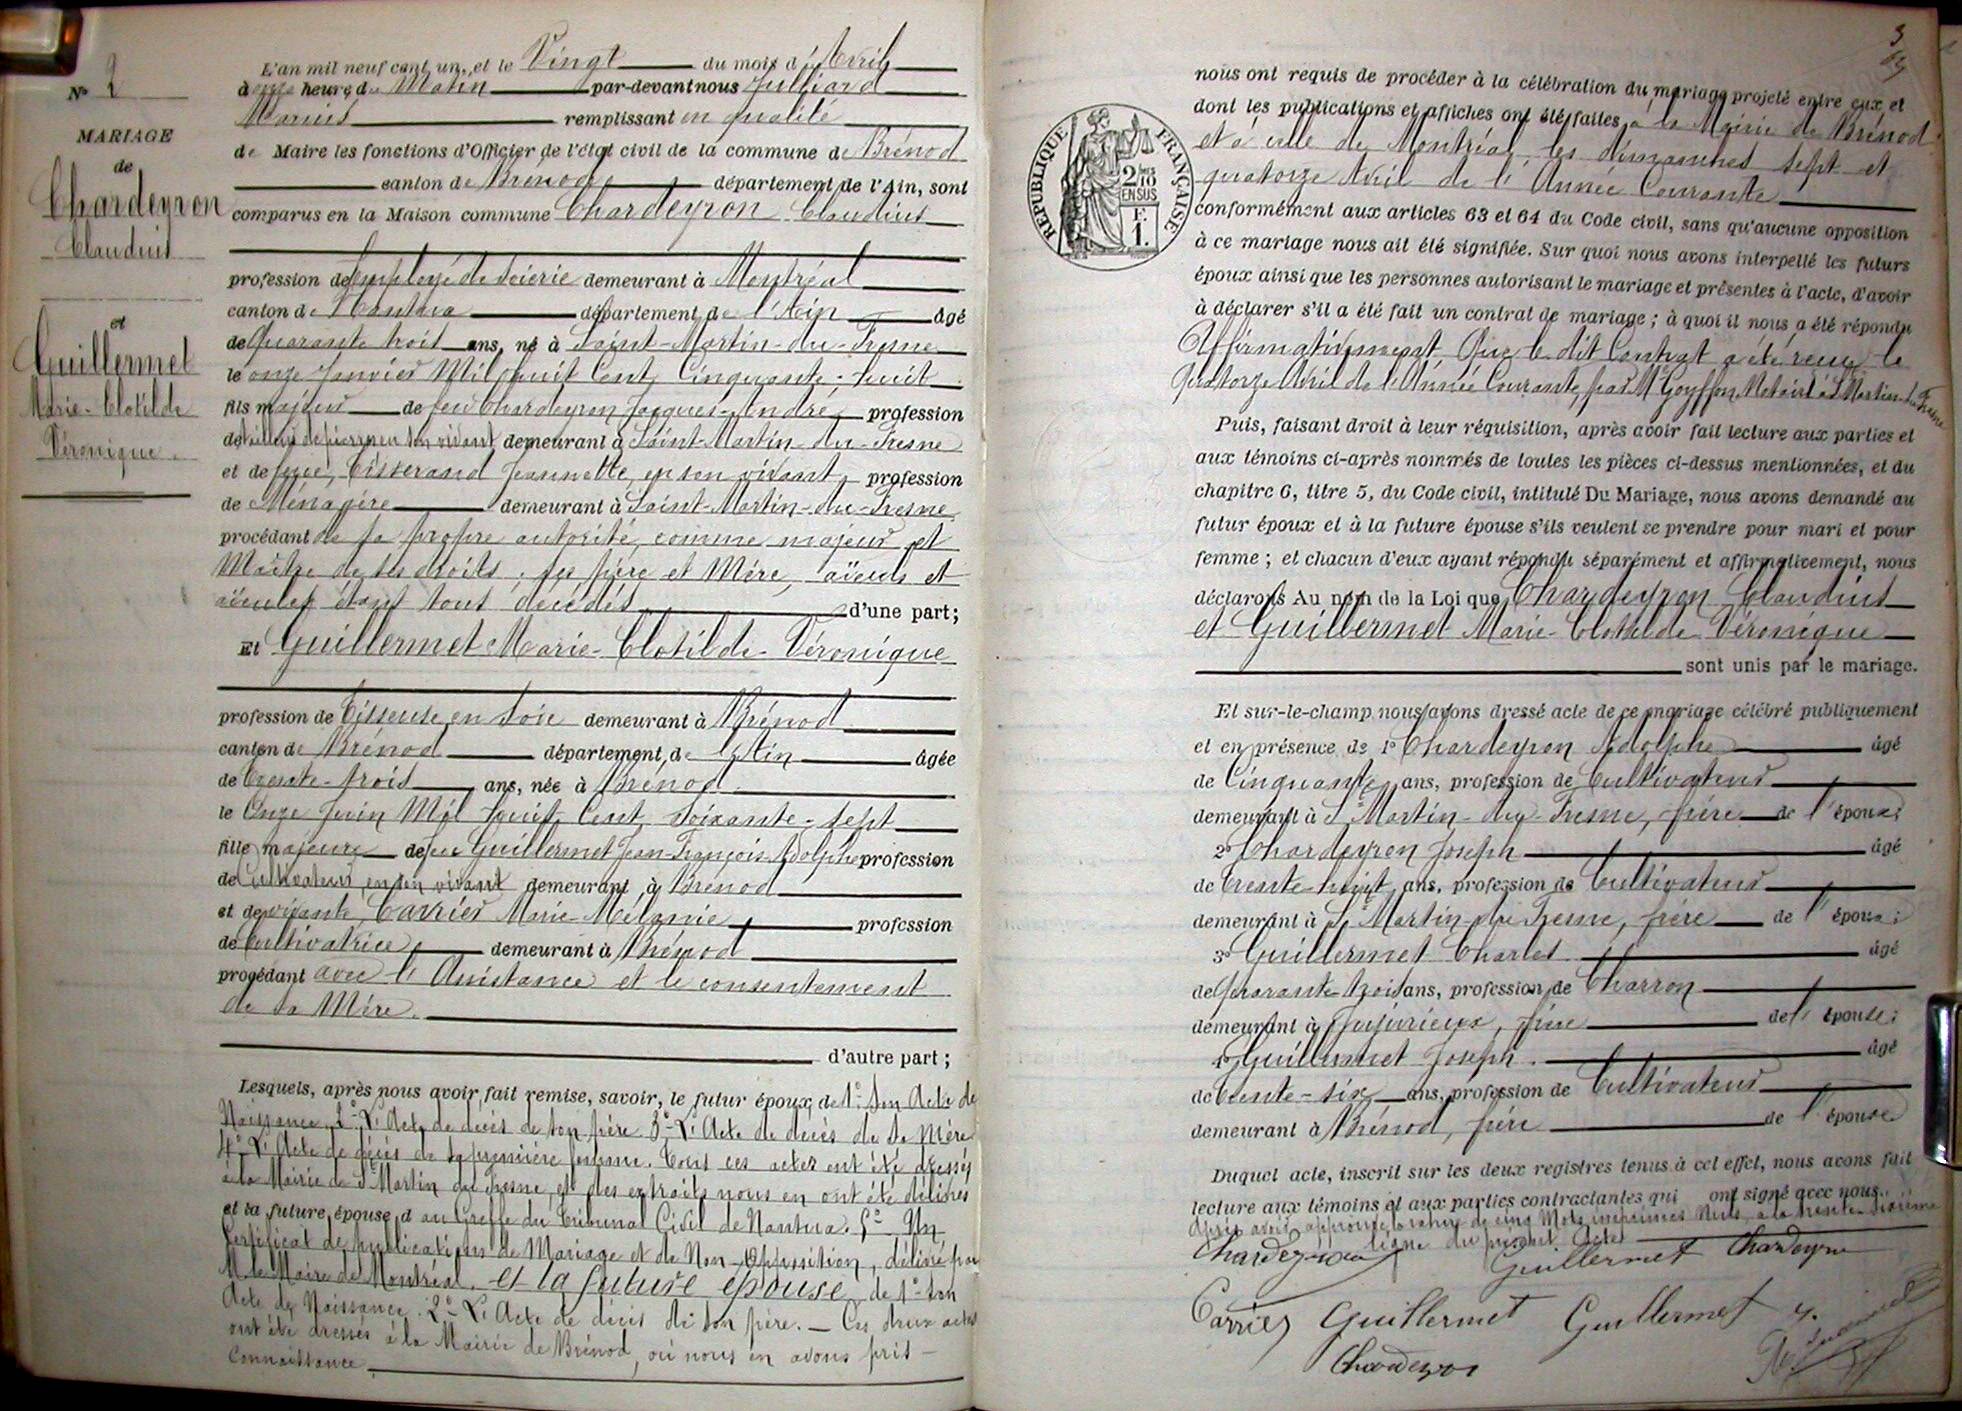 N° 2
MARIAGE
de
Chardeyron
Claudius
et
Guillermet
Marie-Clotilde
Véronique.
L'an mil neuf cent un, et le Vingt du mois d'Avril
à onze heures du Matin par-devant nous Julliard
Marius remplissant en qualité
de Maire les fonctions d'Officier de l'état civil de la commune de Brénod
canton de Brénod, département de l'Ain, sont
comparus en la Maison commune Chardeyron Claudius
profession de Employé de soierie demeurant à Montréal
canton de Nantua département de l'Ain âgé
de Quarante trois ans, né à Saint-Martin-du-Fresne
le onze Janvier Mil huit Cent Cinquante-huit
fils majeur de feu Chardeyron Jacques-André profession
de tailleur de pierres en son vivant demeurant à Saint-Martin-du-Fresne
et de feue, Tisserand Jeannette, en son vivant, profession
de Ménagère demeurant à Saint-Martin-du-Fresne
procédant de sa propre autorité, comme majeur et
Maître de ses droits, ses père et Mère, aïeuls et
aïeules étant tous décédés d'une part;
Et Guillermet Marie-Clotilde-Véronique
profession de Tisseuse en soie demeurant à Brénod
canton de Brénod département de l'Ain âgée
de Trente-trois ans, née à Brénod
le Onze Juin Mil huit Cent Soixante-sept
fille majeure de feu Guillermet Jean-François-Adolphe profession
de Cultivateur, en son vivant demeurant à Brénod
et de vivante, Carrier Marie-Mélanie, profession
de Cultivatrice, demeurant à Brénod
procédant avec l'Assistance et le consentement
de sa Mère.
d'autre part;
Lesquels, après nous avoir fait remise, savoir, le futur époux, de 1° Son Acte de
Naissance. 2° L'Acte de décès de son père. 3° L'Acte de décès de sa Mère
4° L'Acte de décès de sa première femme. Tous ces actes ont été dressés
à la Mairie de St Martin du Fresne, et des extraits nous en ont été délivrés
et la future épouse, d au Greffe du Tribunal Civil de Nantua. 5° Un
Certificat de publications de Mariage et de Non-opposition, délivré par
M. le Maire de Montréal. et la future épouse, de 1° Son
Acte de Naissance. 2° L'Acte de décès de son père. — Ces deux actes
ont été dressés à la Mairie de Brénod, où nous en avons pris
Connaissance
3
nous ont requis de procéder à la célébration du mariage projeté entre eux et
dont les publications et affiches ont été faites, à la Mairie de Brénod
et à celle de Montréal, les dimanches sept et
quatorze Avril de l'Année Courante
conformément aux articles 63 et 64 du Code civil, sans qu'aucune opposition
à ce mariage nous ait été signifiée. Sur quoi nous avons interpellé les futurs
époux ainsi que les personnes autorisant le mariage et présentes à l'acte, d'avoir
à déclarer s'il a été fait un contrat de mariage; à quoi il nous a été répondu
Affirmativement Que le dit Contrat a été reçu le
Quatorze Avril de l'Année Courante, par Me Goyffon, Notaire à St Martin-du-Fresne
RÉPUBLIQUE FRANÇAISE
2/10 EN SUS
F.
1.
Puis, faisant droit à leur réquisition, après avoir fait lecture aux parties et
aux témoins ci-après nommés de toutes les pièces ci-dessus mentionnées, et du
chapitre 6, titre 5, du Code civil, intitulé Du Mariage, nous avons demandé au
futur époux et à la future épouse s'ils veulent se prendre pour mari et pour
femme; et chacun d'eux ayant répondu séparément et affirmativement, nous
déclarons Au nom de la Loi que Chardeyron Claudius
et Guillermet Marie-Clotilde Véronique
sont unis par le mariage.
Et sur-le-champ nous avons dressé acte de ce mariage célébré publiquement
et en présence de 1° Chardeyron Adolphe âgé
de Cinquante ans, profession de Cultivateur
demeurant à St Martin-du-Fresne, frère de l'époux;
2° Chardeyron Joseph âgé
de Trente-huit ans, profession de Cultivateur
demeurant à St Martin-du-Fresne, frère de l'époux;
3° Guillermet Charles âgé
de Quarante-trois ans, profession de Charron
demeurant à Jujurieux, frère de l'épouse;
4° Guillermet Joseph. âgé
de Trente-six ans, profession de Cultivateur
demeurant à Brénod, frère de l'épouse
Duquel acte, inscrit sur les deux registres tenus à cet effet, nous avons fait
lecture aux témoins et aux parties contractantes qui ont signé avec nous.
Après avoir approuvé la rature de cinq Mots imprimés Nuls, à la trente-sixième
ligne du présent Acte
Chardeyron Guillermet Chardeyron
Carrier Guillermet Guillermet J.
Chardeyron